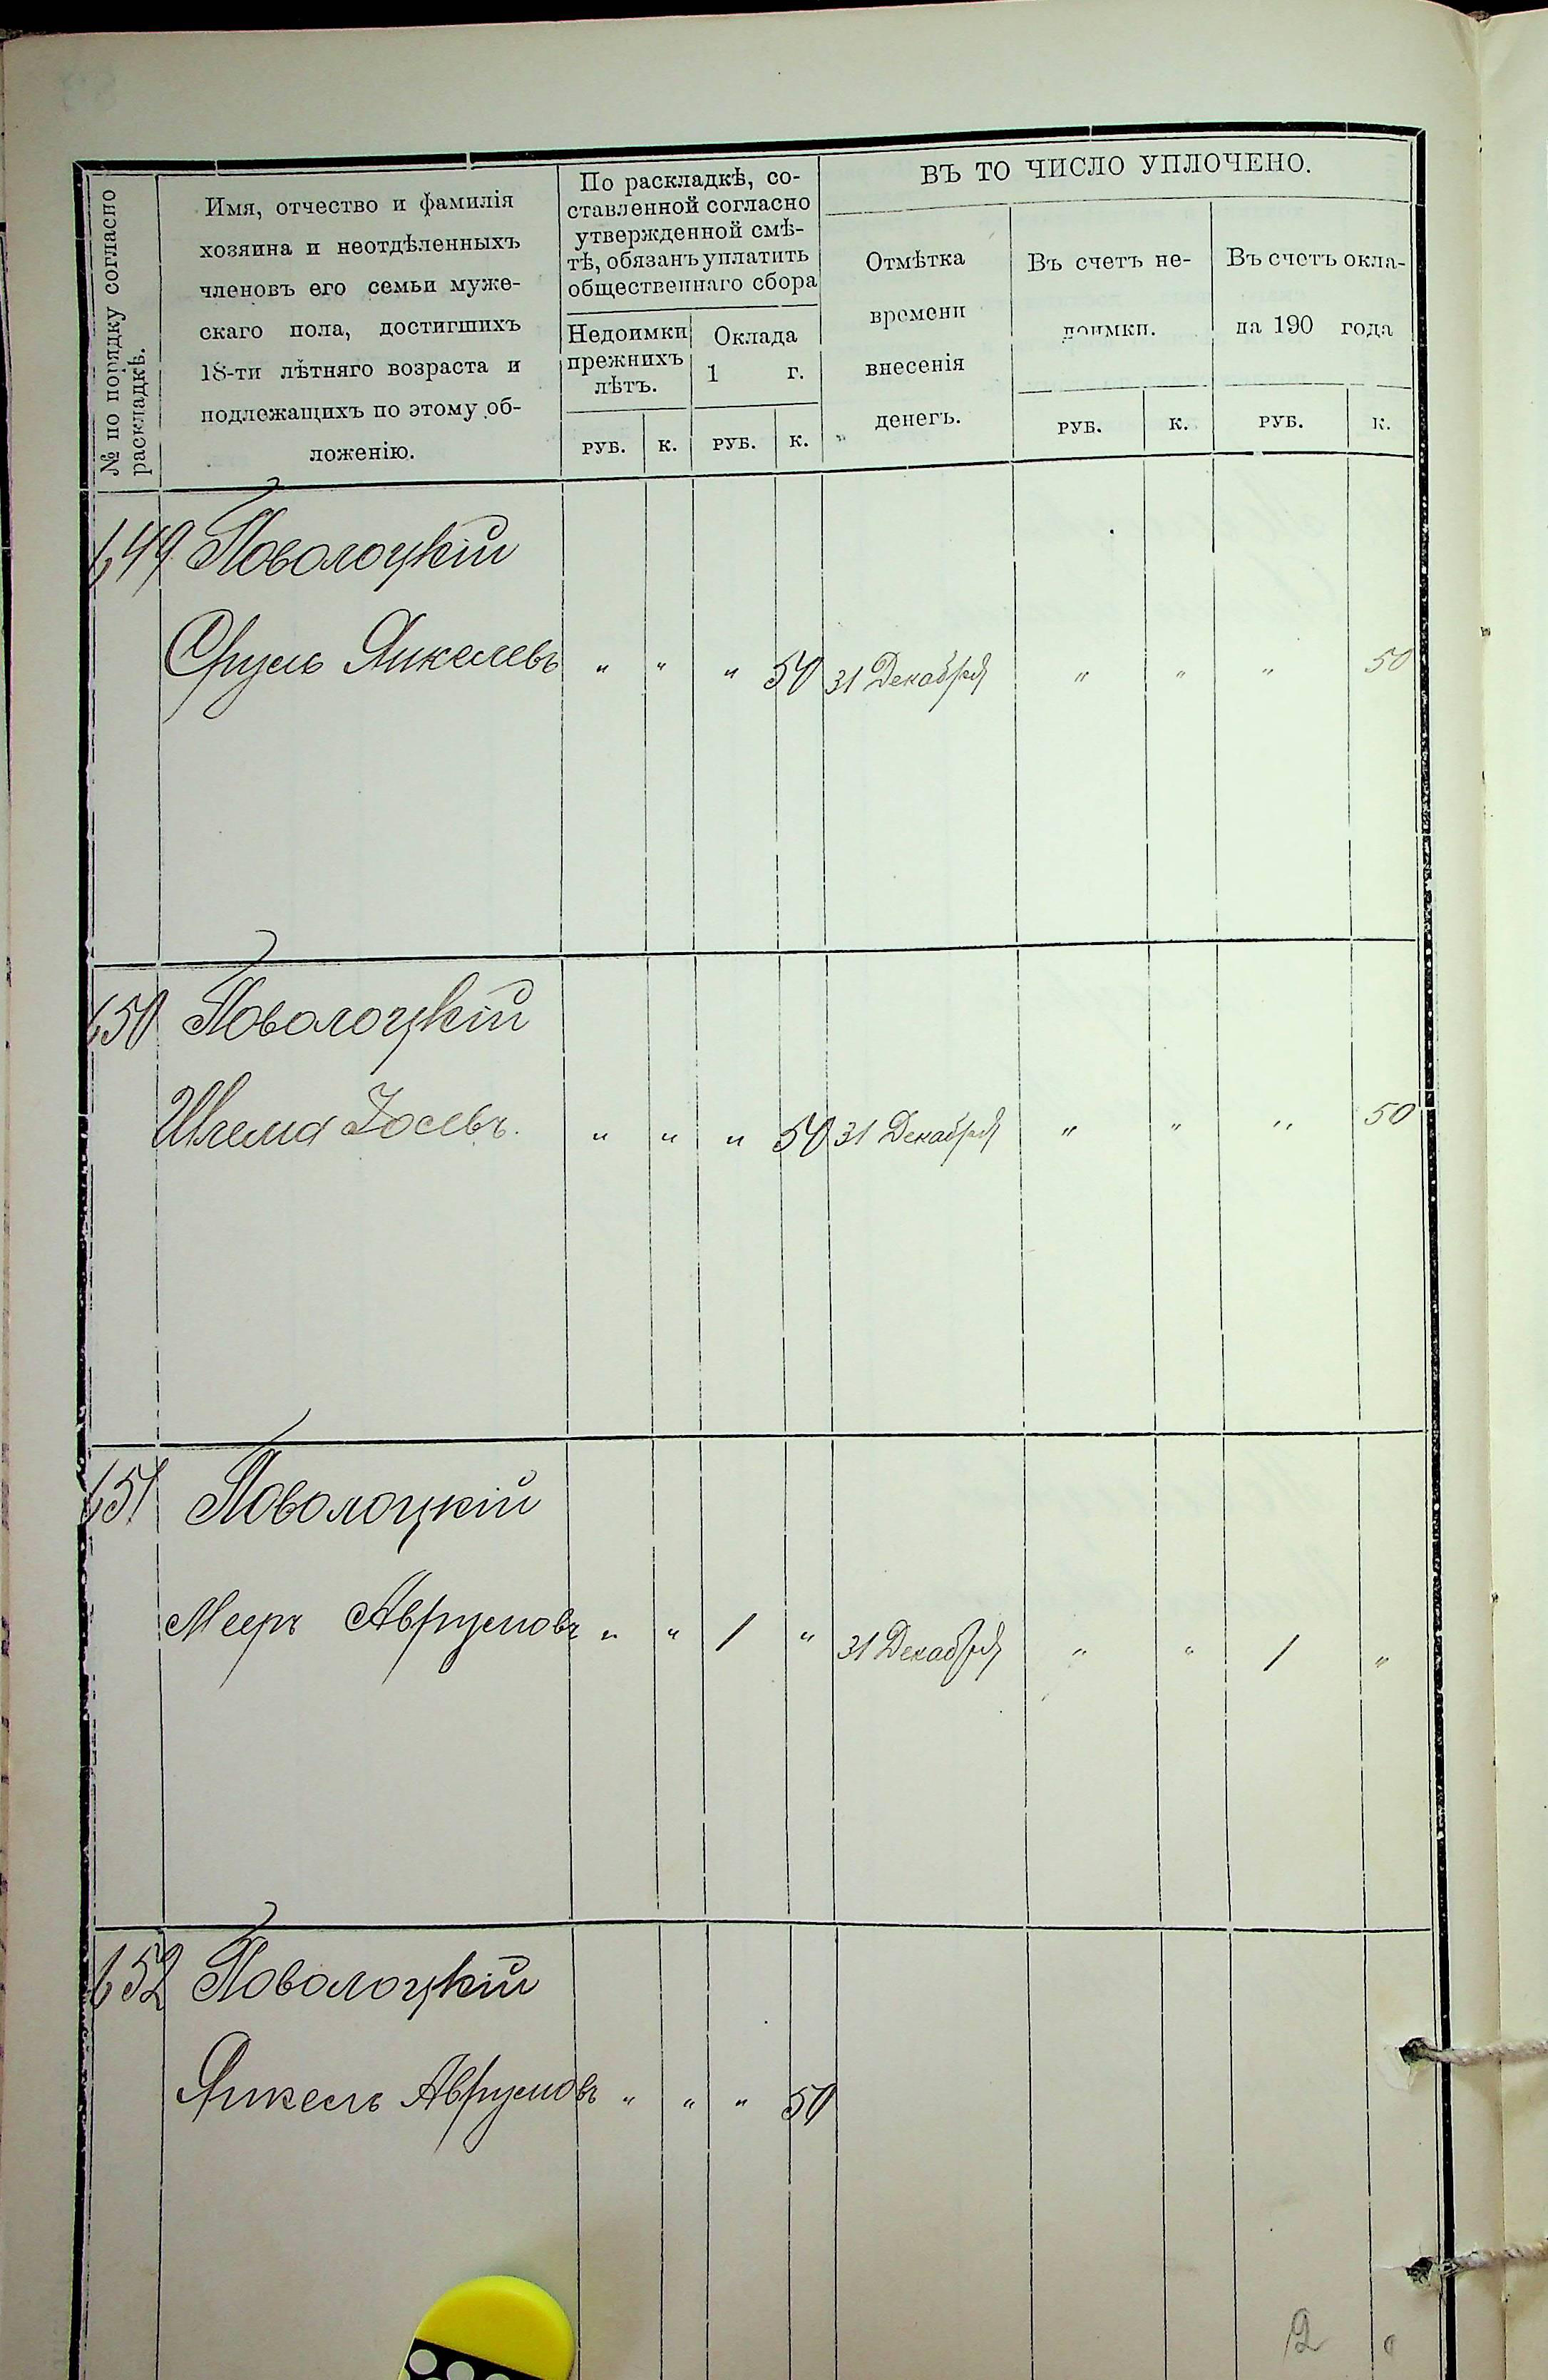 № по порядку согласно раскладкѣ.
Имя, отчество и фамилія
хозяина и неотдѣленныхъ
членовъ его семьи муже-
скаго пола, достигшихъ
18-ти лѣтняго возраста и
подлежащихъ по этому об-
ложенію.
По раскладкѣ, со-
ставленной согласно
утвержденной смѣ-
тѣ, обязанъ уплатить
общественнаго сбора
Недоимки
прежнихъ
лѣтъ.
Оклада
1 г.
РУБ. К. РУБ. К.
ВЪ ТО ЧИСЛО УПЛОЧЕНО.
Отмѣтка
времени
внесенія
денегъ.
Въ счетъ не-
доимки.
Въ счетъ окла-
на 190 года
РУБ. К. РУБ. К.
649 Поволоцкій
Сруль Янкелевъ " " " 50 31 Декабря " " " 50
650 Поволоцкій
Шлема Іосевъ. " " " 50 31 Декабря " " " 50
651 Поволоцкій
Мееръ Аврумовъ " " 1 " 31 Декабря " " 1 "
652 Поволоцкій
Янкель Аврумовъ " " " 50
2 "